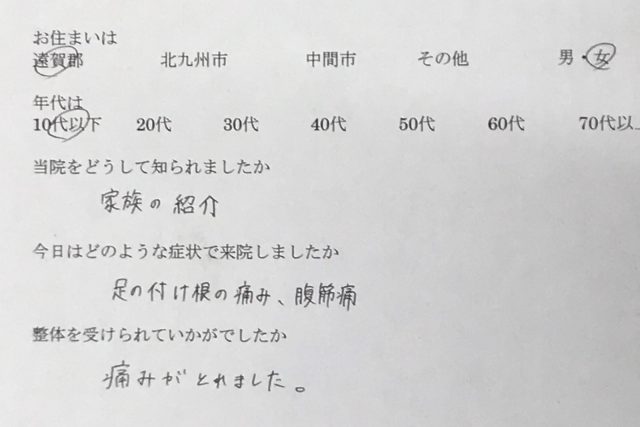 お住まいは
遠賀郡 北九州市 中間市 その他 男・女
年代は
10代以下 20代 30代 40代 50代 60代 70代以上
当院をどうして知られましたか
家族の紹介
今日はどのような症状で来院しましたか
足の付け根の痛み、腹筋痛
整体を受けられていかがでしたか
痛みがとれました。